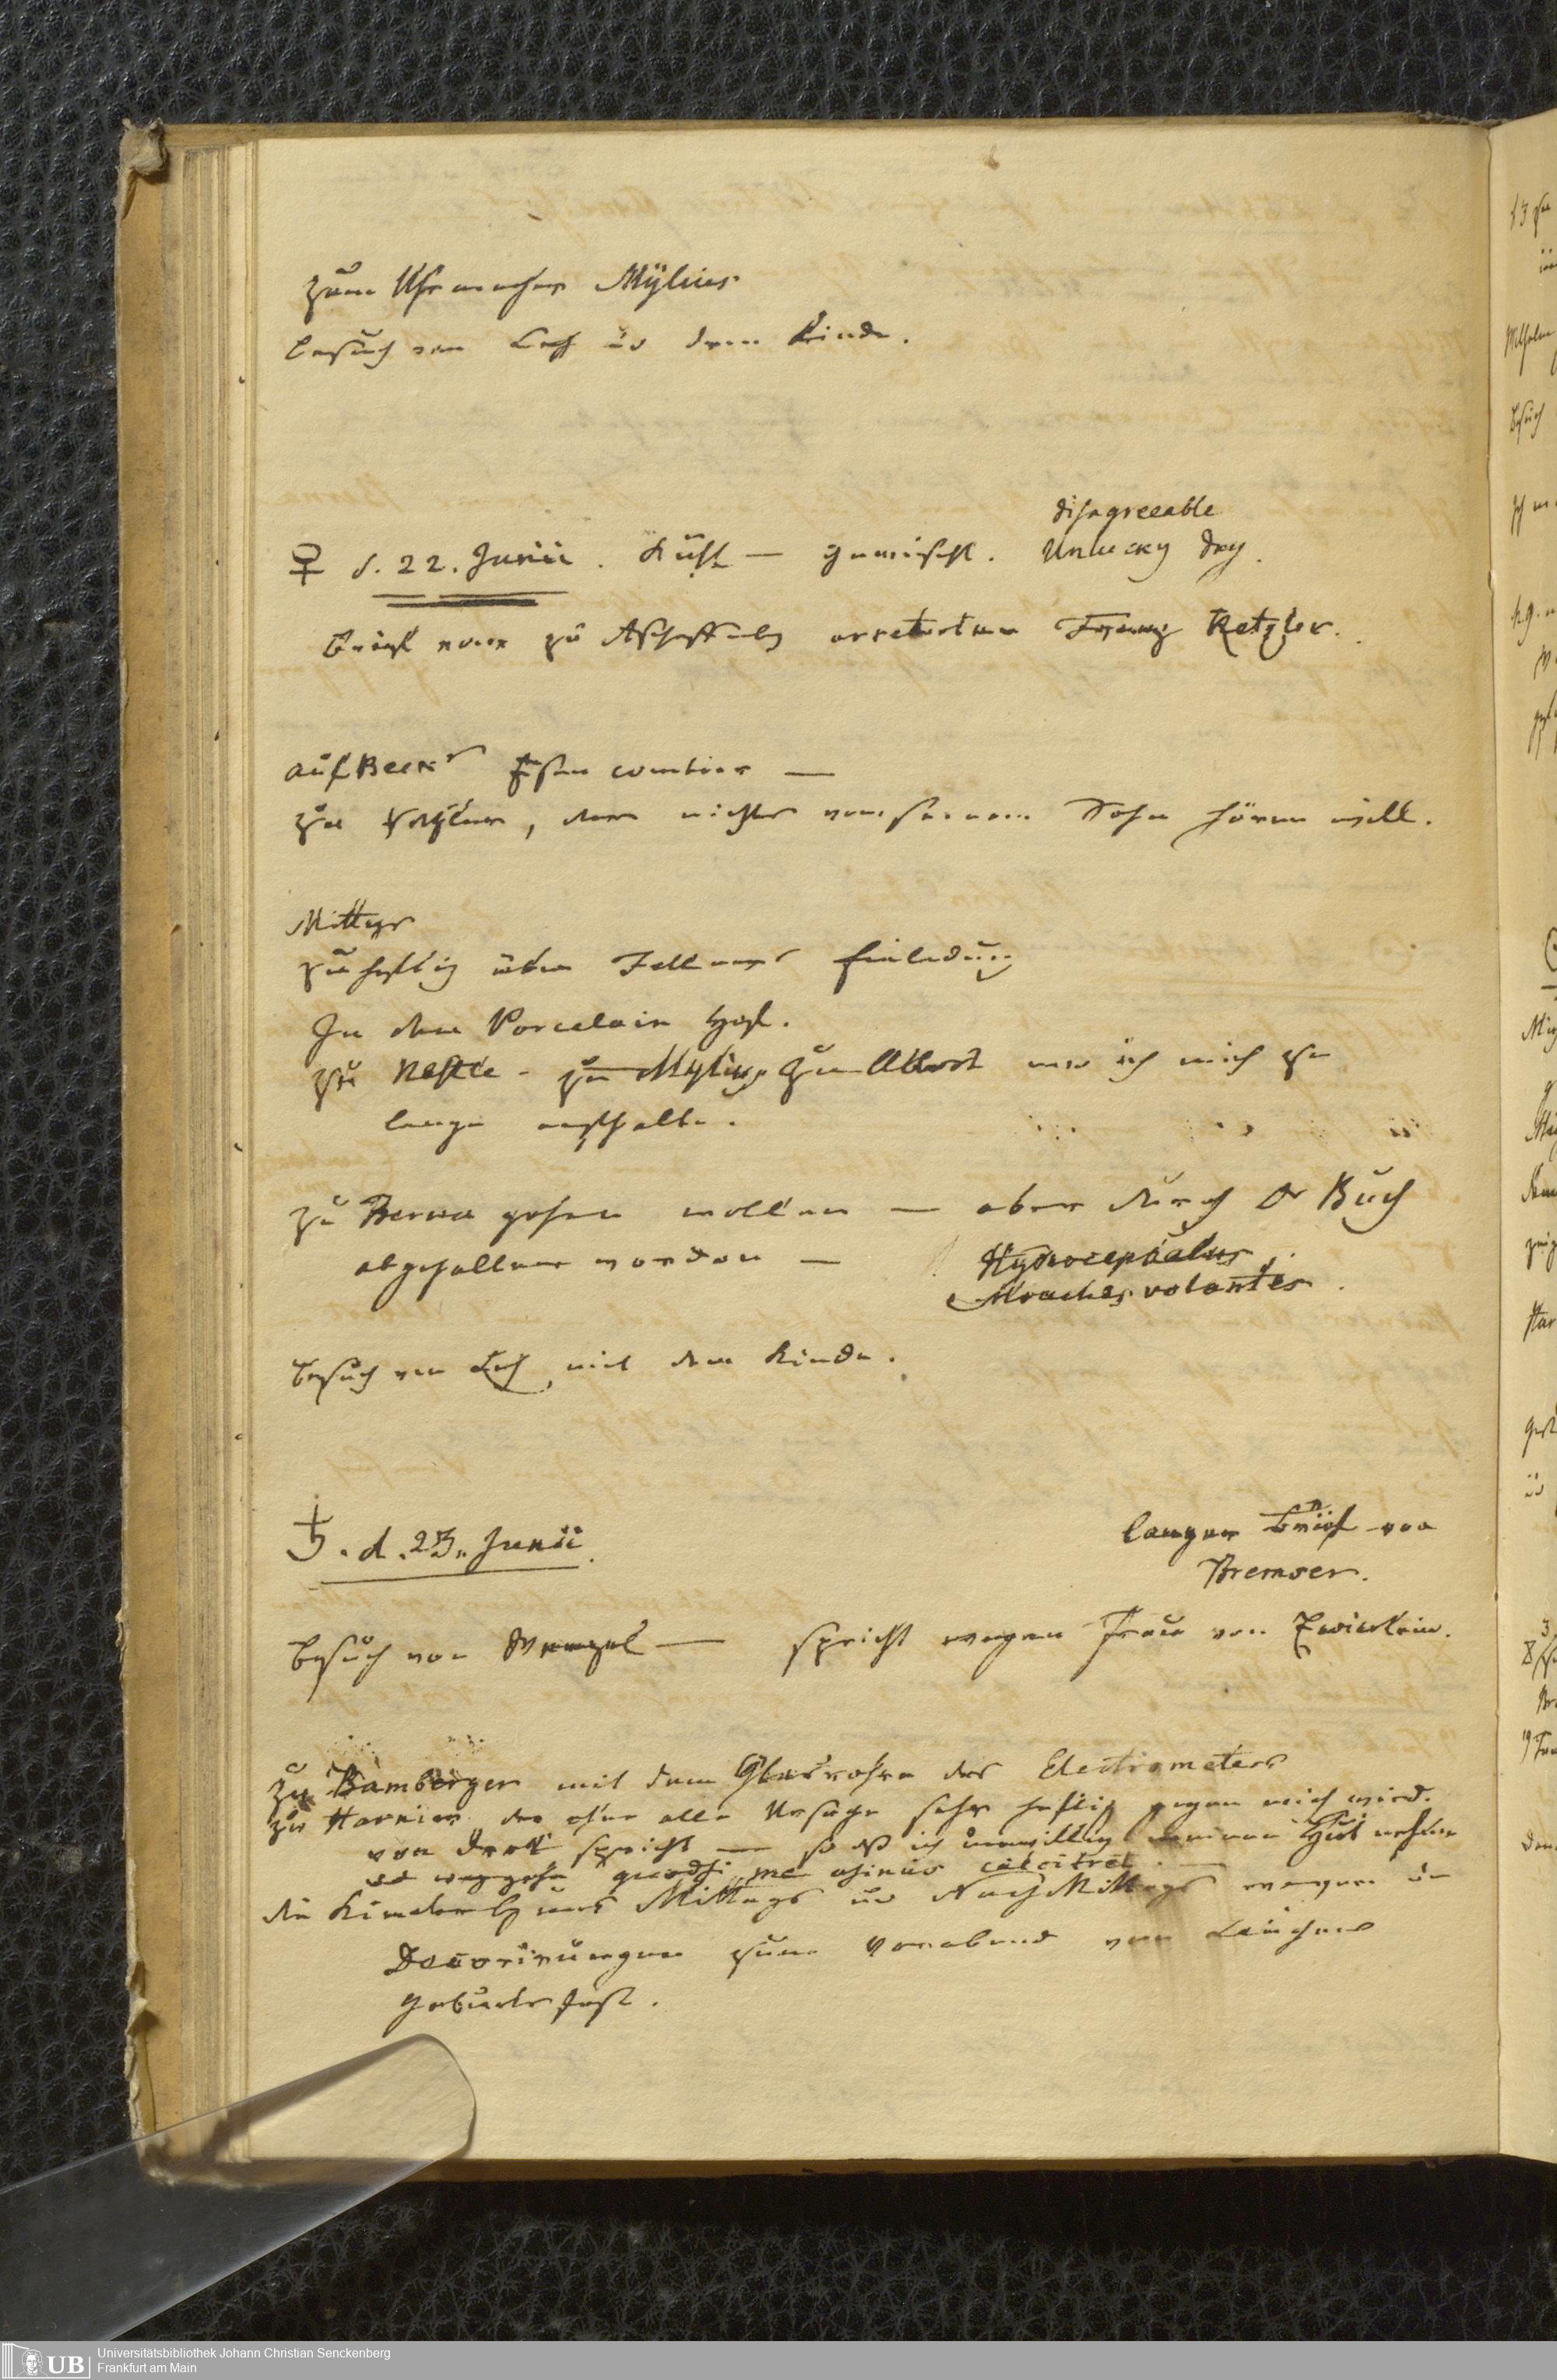 zum Uhrmacher Mÿlius
Besuch von Loh ud dem Kinde.
disagreeable
♀ d. 22. Junii. Kühl — gemischt. Unlucky day.
Brief vom zu Aschaffenbg arretirten Franz Ketzler.
auf Beckers
zu Ketzler, der nichts von seinem Sohn hören will.
Mittags
zu heftig über Fellners Einladung
In den Porcelain Hof.
zu Nestle - zu Mylius, zu Albert wo ich mich zu
lange aufhalte.
zu Berna gehen wollen — aber durch Dr Buch
abgehalten worden — Hydrocephalus.
Mouches volantes.
Besuch von Loh mit dem Kinde.
♄. d. 23. Junii. langer Brief von
Bremser.
Besuch von Wenzel — spricht wegen Frau von Zwierlein.
zu Bamberger mit dem Glasrohre des Electrometers
zu Harnier der ohne alle Ursache sehr heftig gegen mich wird.
von spricht — so dß ich unwillig meinen Hut nehme
ud weggehe quodsi me asinus calcitret. —
die Kinder bey uns Mittags ud NachMittags wegen den
Decorirungen zum Vorabend von
Geburtsfest.
Universitätsbibliothek Johann Christian Senckenberg
Frankfurt am Main
UB